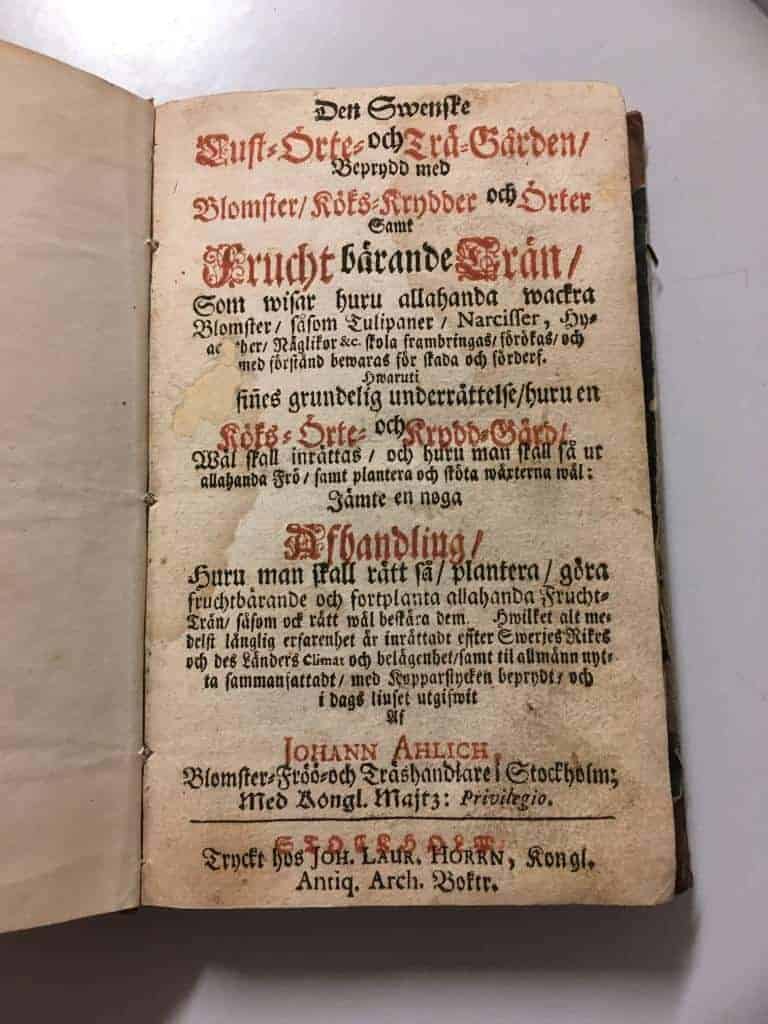 Den Swenske
Lust-Örte- och Trä-Gården/
Beprydd med
Blomster/ Köks-Krydder och Örter
Samt
Frucht bärande Trän/
Som wisar huru allahanda wackra
Blomster/ såsom Tulipaner/ Narcisser, Hy-
Näglikor &c. skola frambringas/ förökas/ och
med förstånd bewaras för skada och förderf.
Hwaruti
fiñes grundelig underrättelse/ huru en
Köks- Örte- och Krydd-Gård/
Wäl skall inrättas/ och huru man skall så ut
allahanda Frö/ samt plantera och sköta wäxterna wäl:
Jämte en noga
Afhandling/
Huru man skall rätt så/ plantera/ göra
fruchtbärande och fortplanta allahanda Frucht-
Trän/ såsom ock rätt wäl beskära dem. Hwilket alt me-
delst långlig erfarenhet är inrättadt effter Swerjes Rikes
och des Länders Climat och belägenhet/ samt til allmänn nyt-
ta sammanfattadt/ med Kopparstycken beprydt/ och
i dags liuset utgifwit
Af
JOHANN AHLICH,
Blomster-Fröö-och Träshandlare i Stockholm;
Med Kongl. Majtz: Privilegio.
STOCKHOLM,
Tryckt hos JOH. LAUR. HORRN, Kongl.
Antiq. Arch. Boktr.